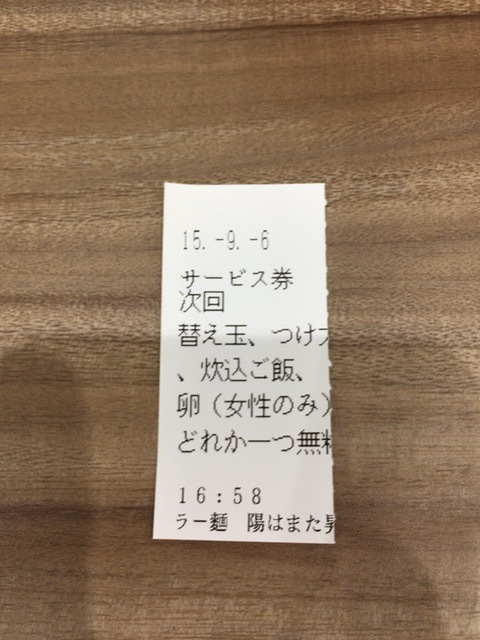 15.-9.-6
サービス券
次回
替え玉、つけ
、炊込ご飯、
卵（女性のみ）
どれか一つ無料
16:58
ラー麺 陽はまた昇